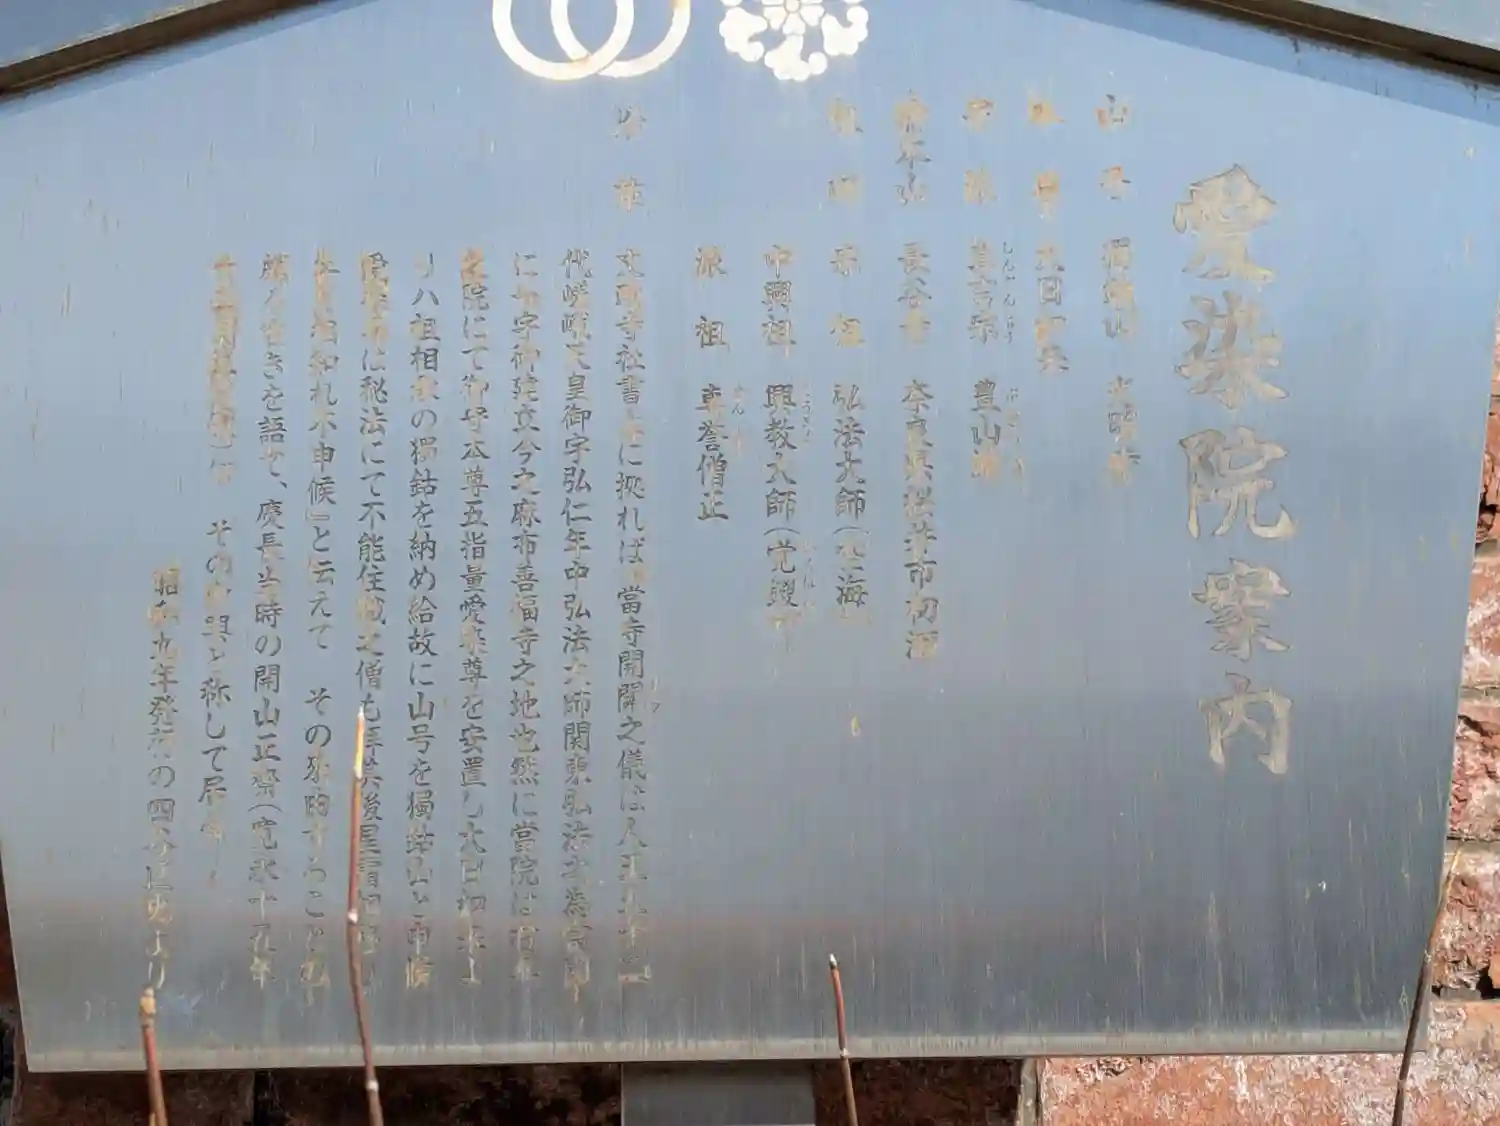 愛染院案内
山号 獨鈷山 光明寺
本尊 大日如来
宗派 真言宗 豊山派
総本山 長谷寺 奈良県桜井市初瀬
祖師 宗祖 弘法大師(空海)
中興祖 興教大師(覚鑁)
派祖 専誉僧正
沿革 文政寺社書上に拠れば「當寺開闢之儀は人王五十二
代嵯峨天皇御宇弘仁年中弘法大師関東弘法之為
に 御建立今之麻布善福寺之地也然に當院は
院にて御守本尊五指量愛染尊を安置し大日如来よ
り八祖相承の獨鈷を納め給故に山号を獨鈷山と申候
は秘法にて不能住職之僧も拝其後星霜
相知れ不申候』と伝えて その
古きを語て、慶長当時の開山正祭(寛永十五年
その中興と称して居る
昭和九年発行の四谷区史より